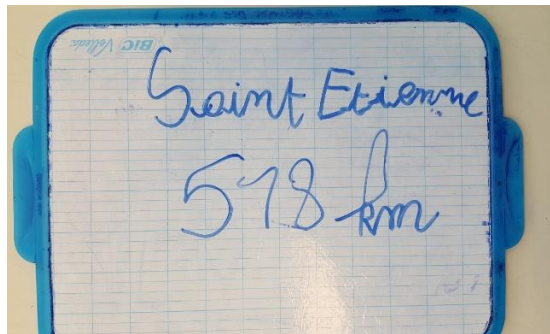 BIC Velleda
Saint Etienne
518 km